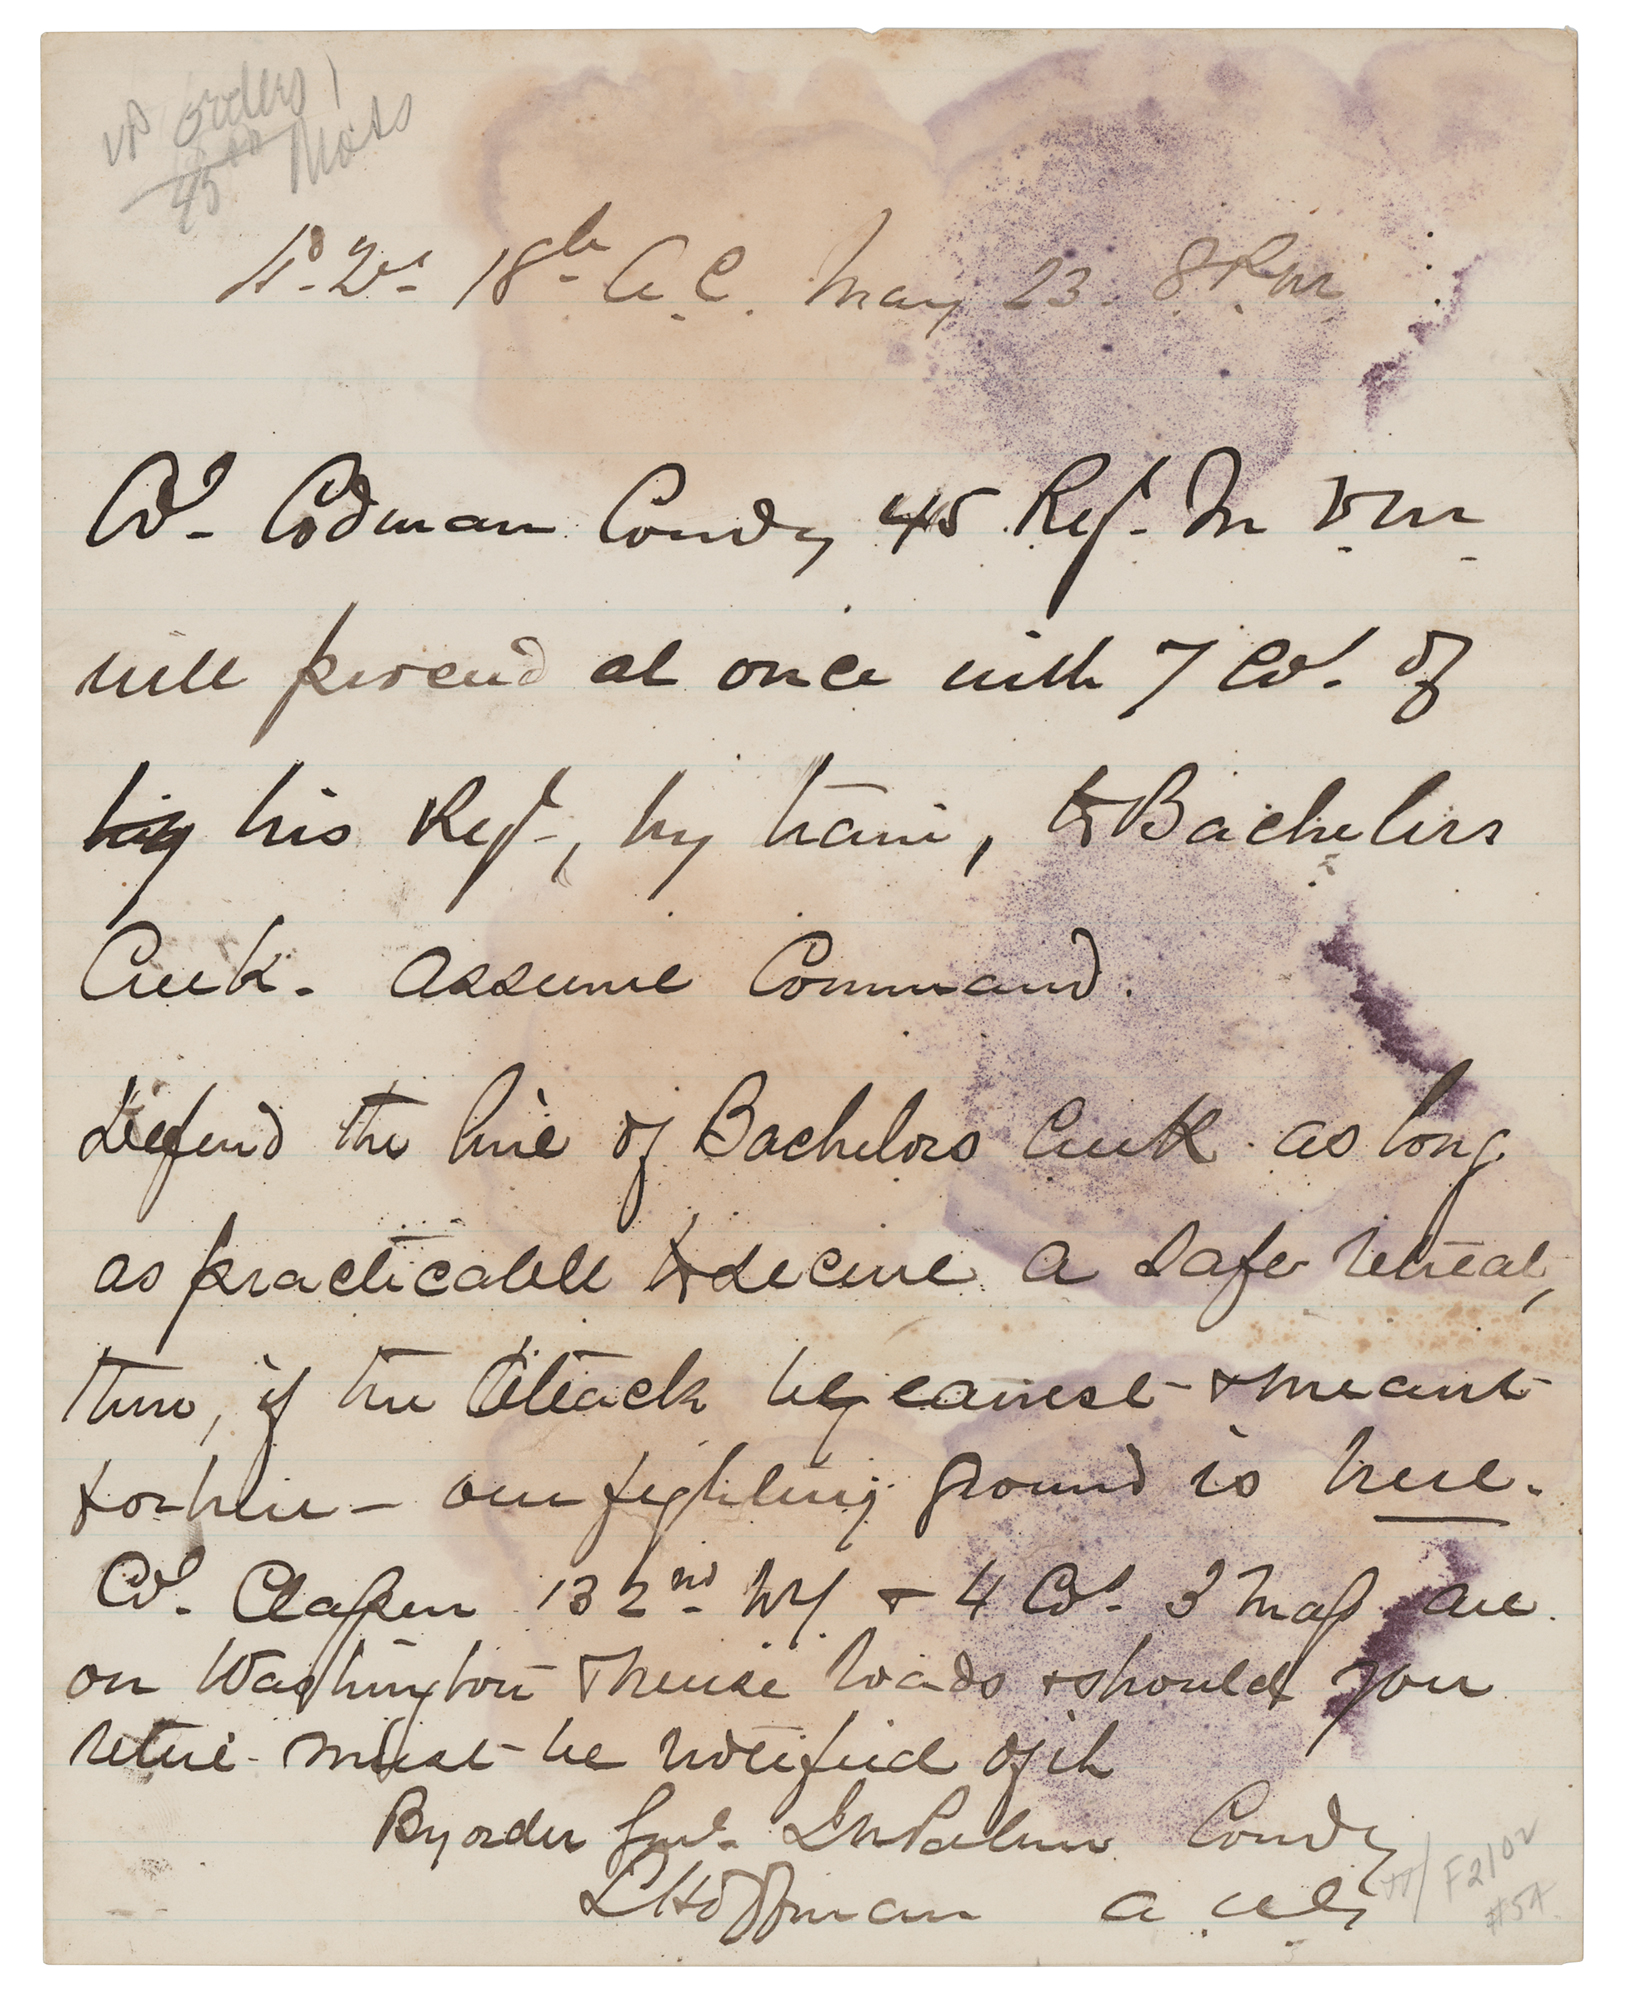 orders
45th Mass
Hd. Qrs. 18th A. C. May 23. 8 P.M.
Col. Codman Comdg 45 Regt. M V M
will proceed at once with 7 Cos. of
his Regt., by train, to Bachelers
Creek. Assume Command.
Defend the line of Bachelors Creek as long
as practicable to secure a safe retreat,
then, if the attack be earnest & meant
for here — our fighting ground is here.
Col. Classen 132nd NY & 4 Cos. 3 Mass are
on Washington & Neuse roads & should you
retire must be notified of it
By order Genl. I N Palmer Comdg
Hoffman A. A. G.
F2102
#5A